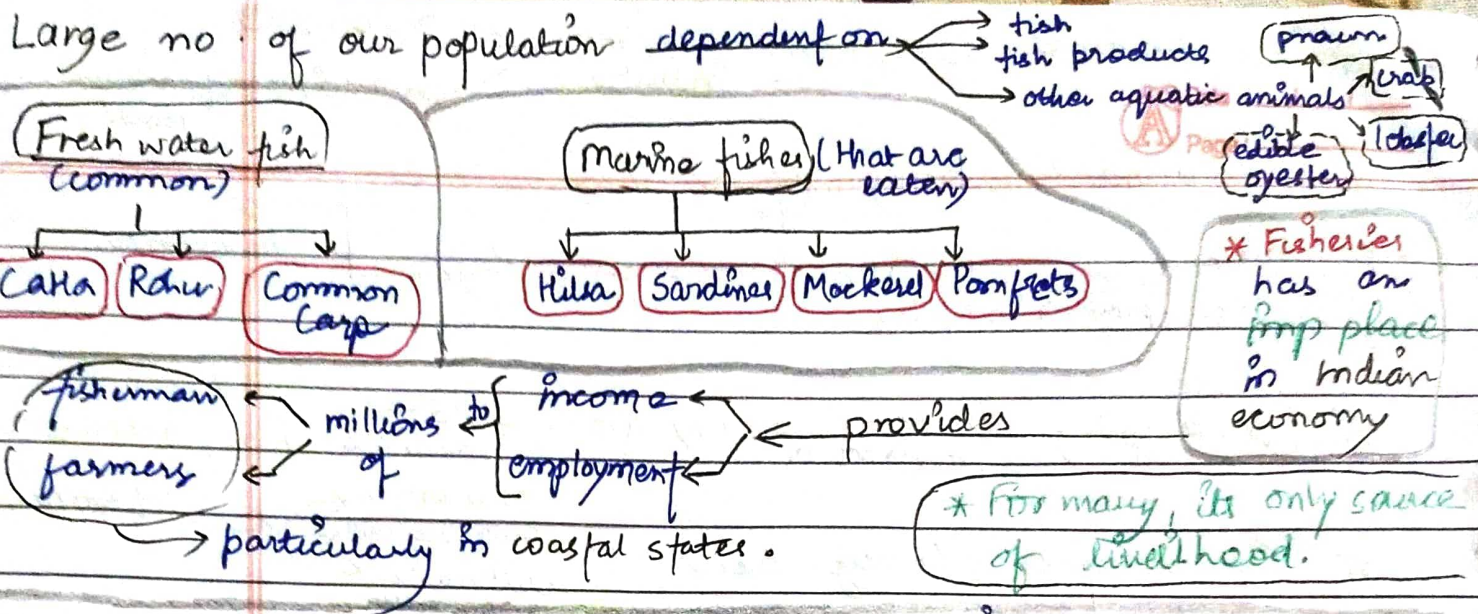 Large no. of our population dependent on
fish
fish products
other aquatic animals
prawn
crab
lobster
edible
oyester
Fresh water fish
(common)
Catla
Rohu
Common
Carp
Marine fishes (that are
eaten)
Hilsa
Sardines
Mackerel
Pomfrets
* Fisheries
has an
imp place
in Indian
economy
provides
income
employment
to
millions
of
fisherman
farmers
particularly in coastal states.
* For many, its only source
of livelihood.